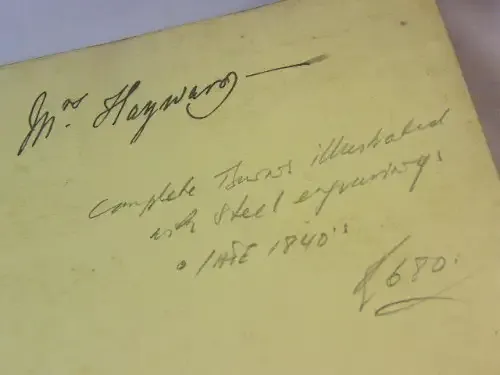 Mrs. Hayward
complete illustrated
with steel engravings
LATE 1840's
£680.